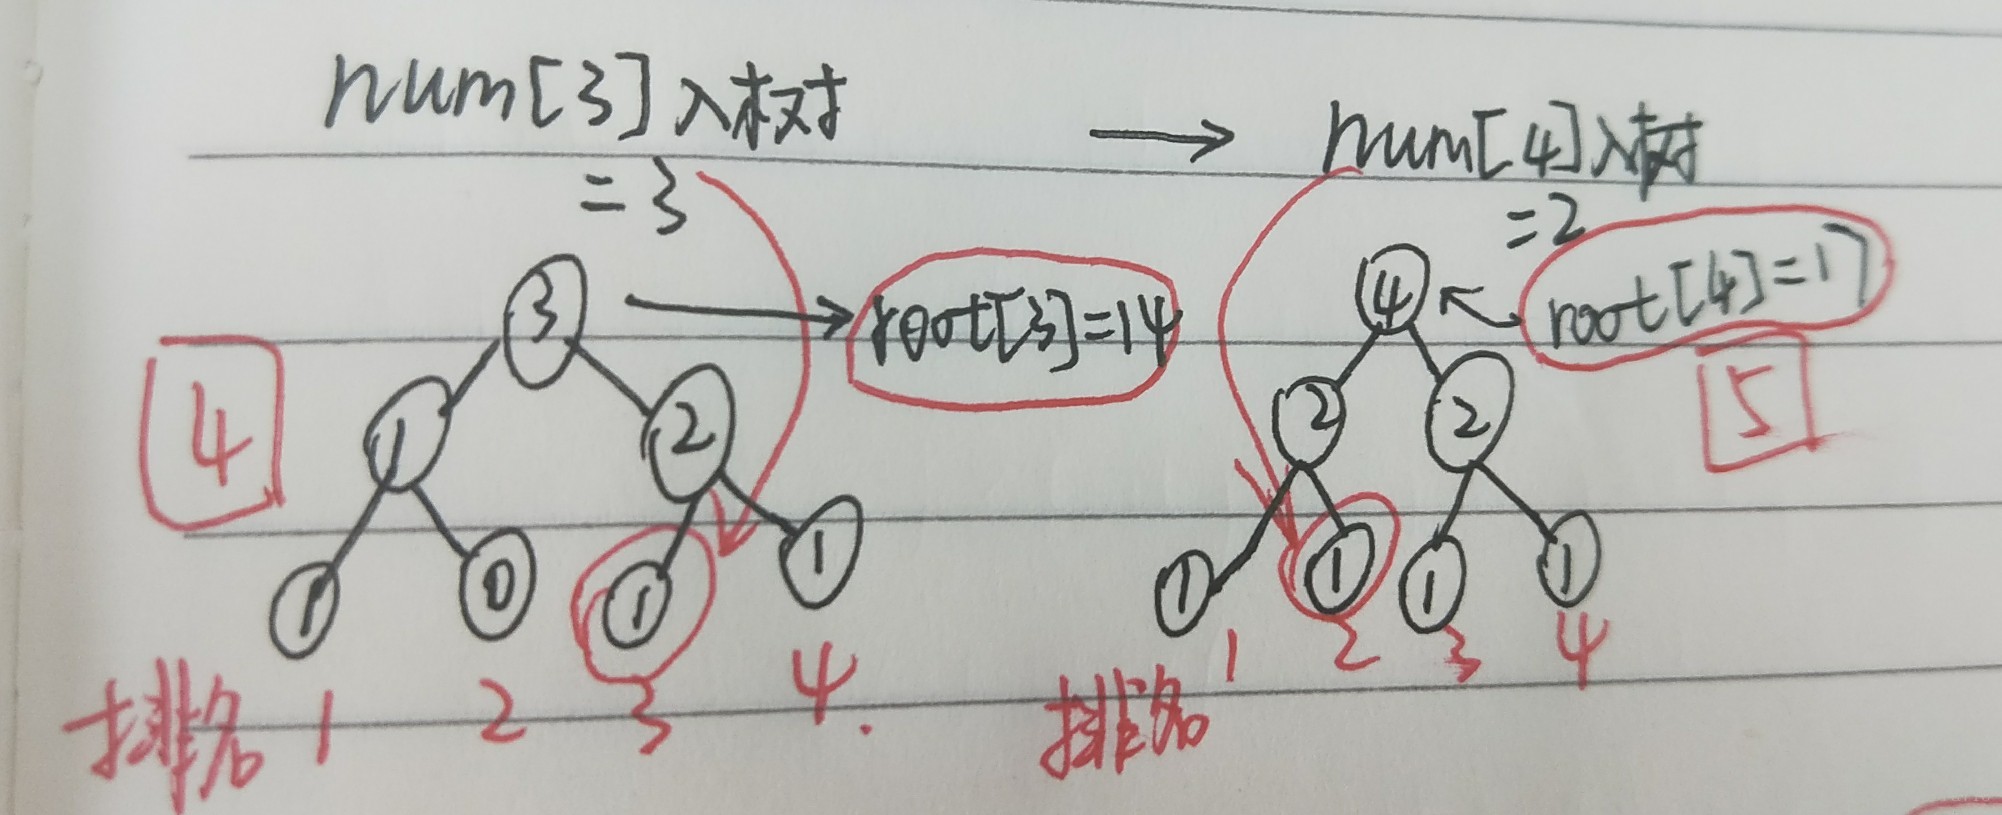 num[3]入树
=3
→ num[4]入树
=2
3
root[3]=14
4
root[4]=17
4
1
2
2
2
5
1
0
1
1
1
1
1
1
排名 1 2 3 4.
排名 1 2 3 4